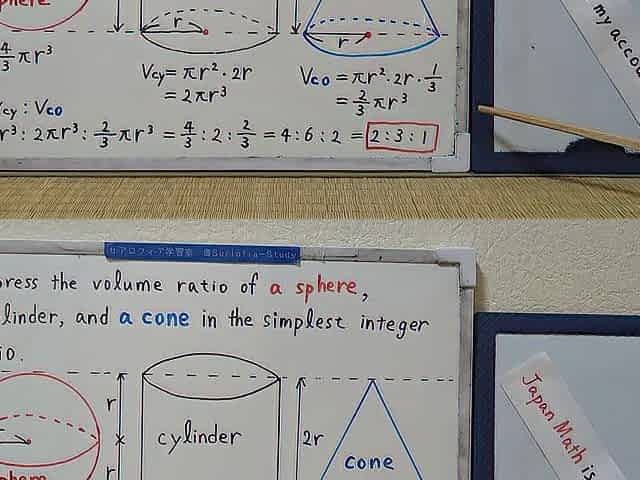 phere
r
r
4/3 πr³
Vcy = πr² · 2r
= 2πr³
Vco = πr² · 2r · 1/3
= 2/3 πr³
cy : Vco
r³ : 2πr³ : 2/3 πr³ = 4/3 : 2 : 2/3 = 4 : 6 : 2 = 2 : 3 : 1
my accou
ress the volume ratio of a sphere,
linder, and a cone in the simplest integer
io.
r
r
cylinder
2r
cone
Japan Math is